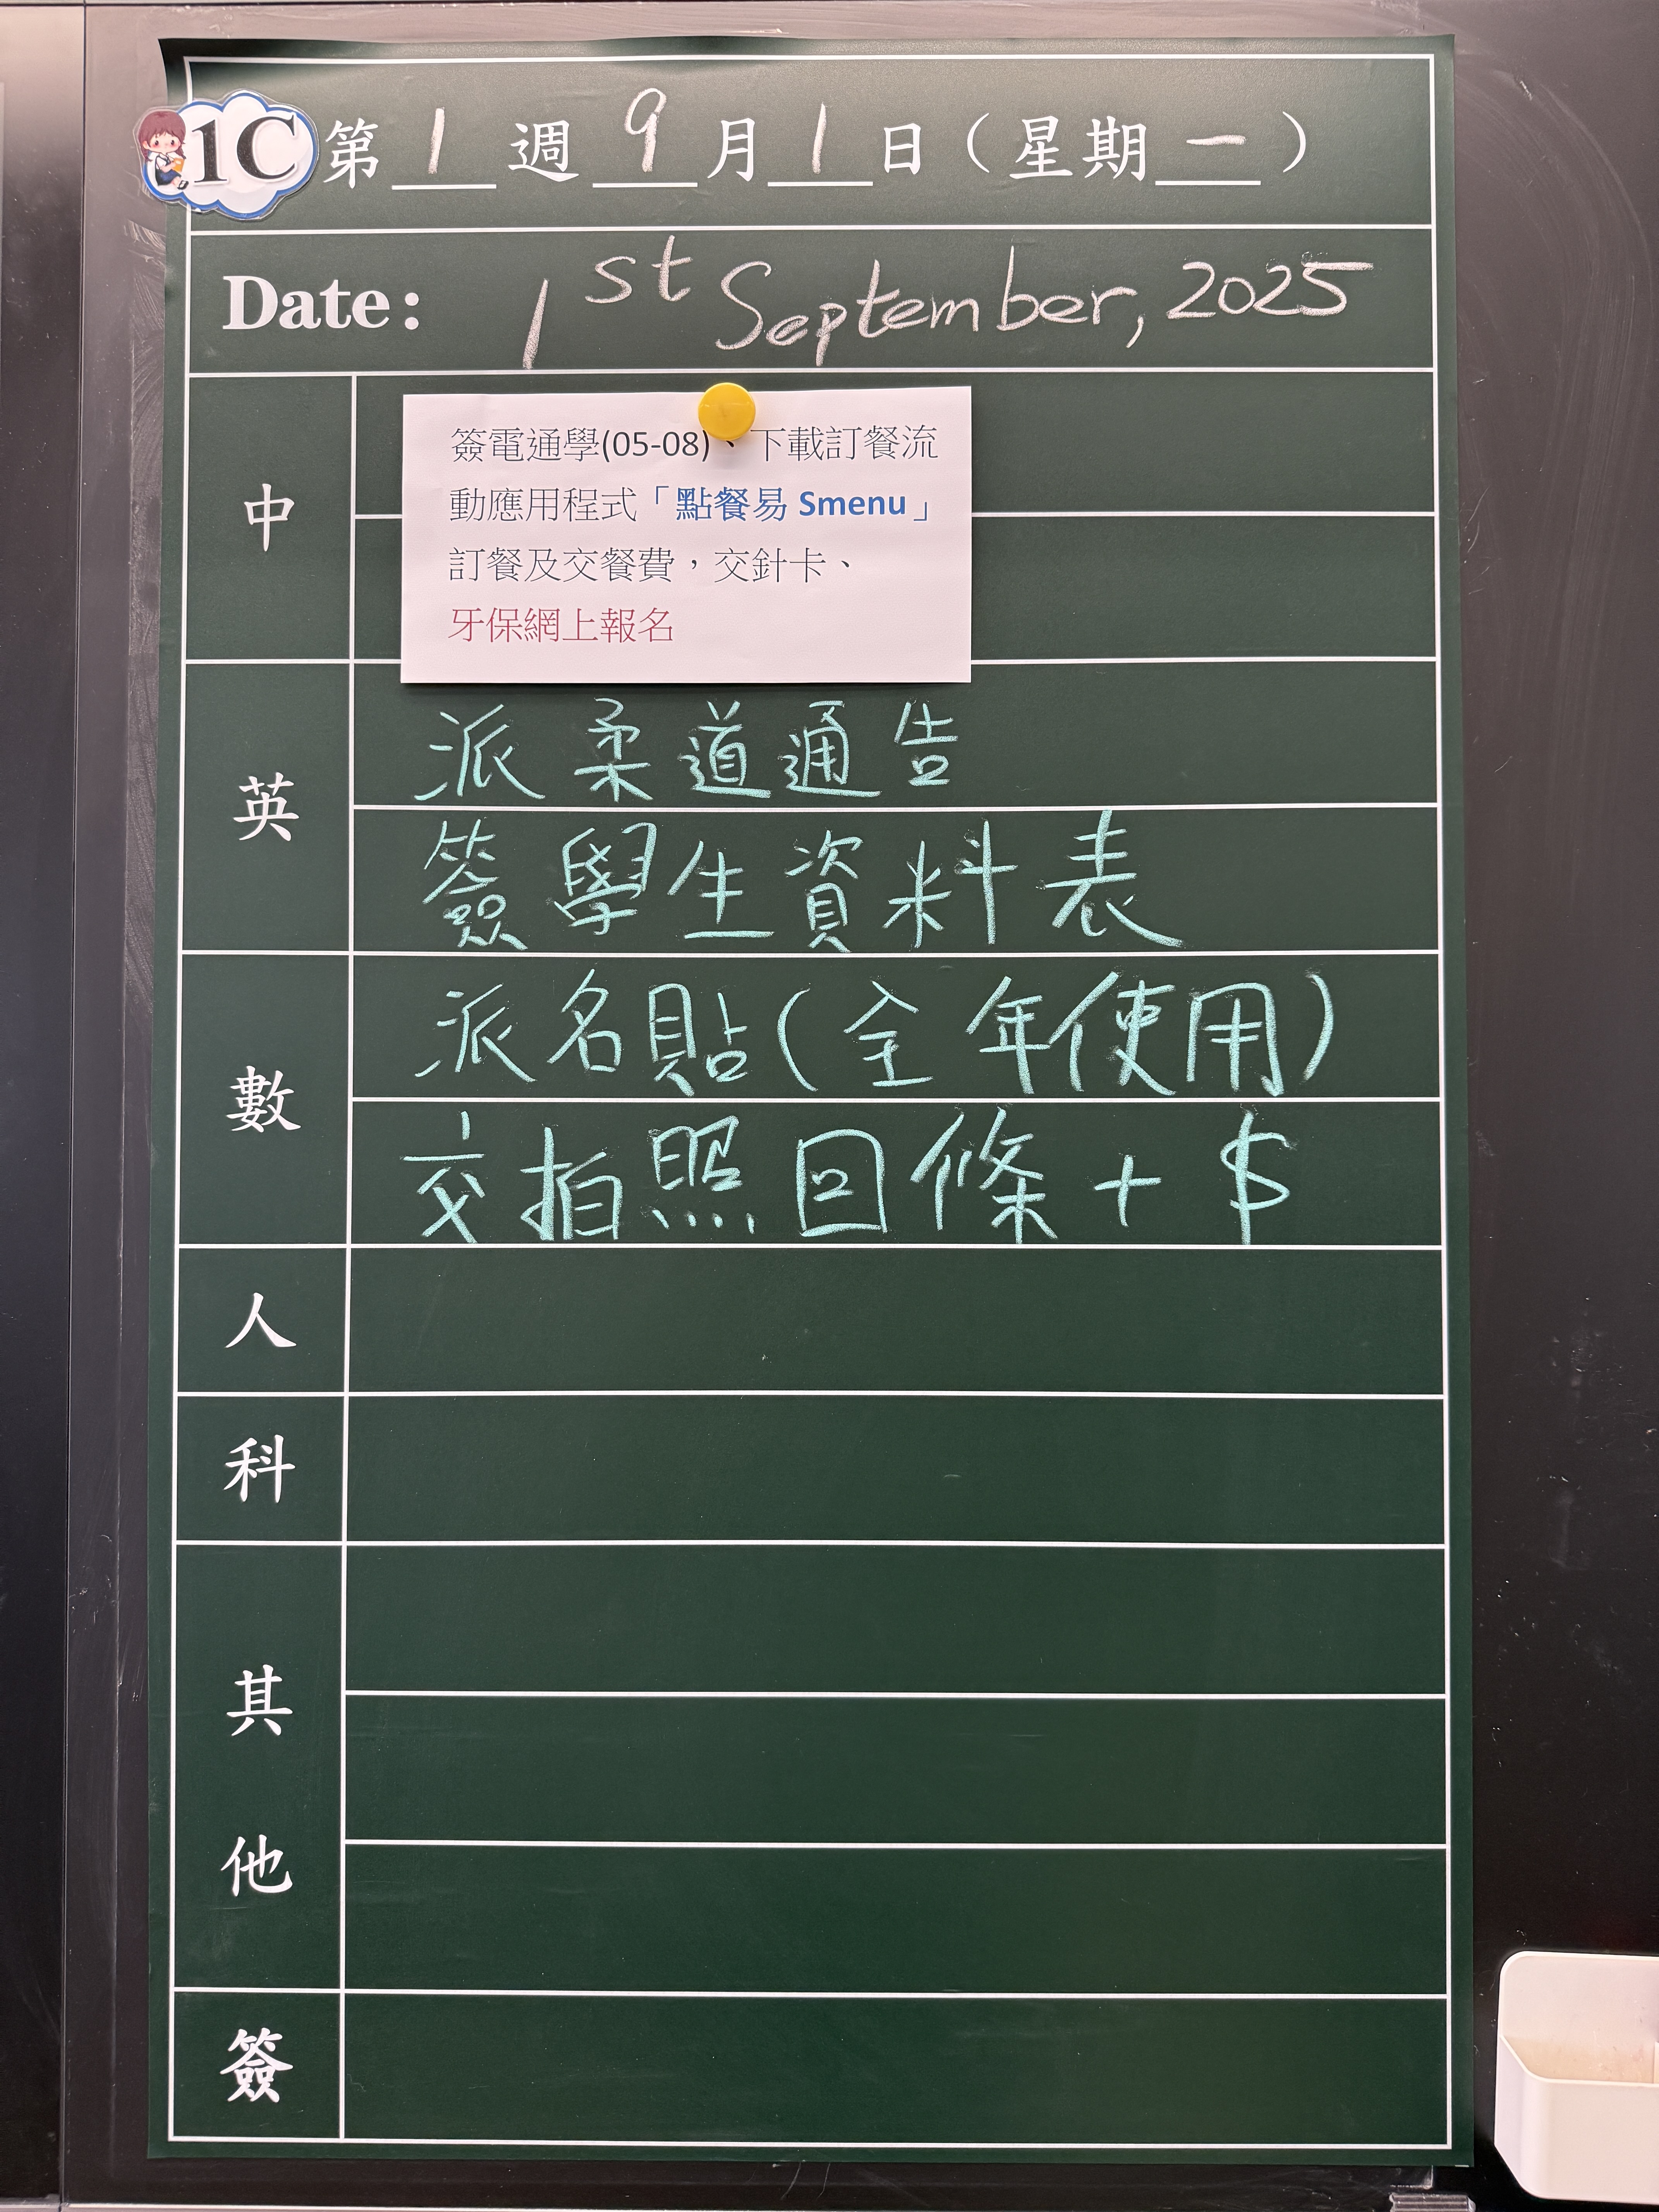 1C 第 1 週 9 月 1 日（星期 一 ）
Date: 1st September, 2025
中
簽電通學(05-08)、下載訂餐流
動應用程式「點餐易 Smenu」
訂餐及交餐費，交針卡、
牙保網上報名
英
派柔道通告
簽學生資料表
數
派名貼(全年使用)
交拍照回條+$
人
科
其
他
簽